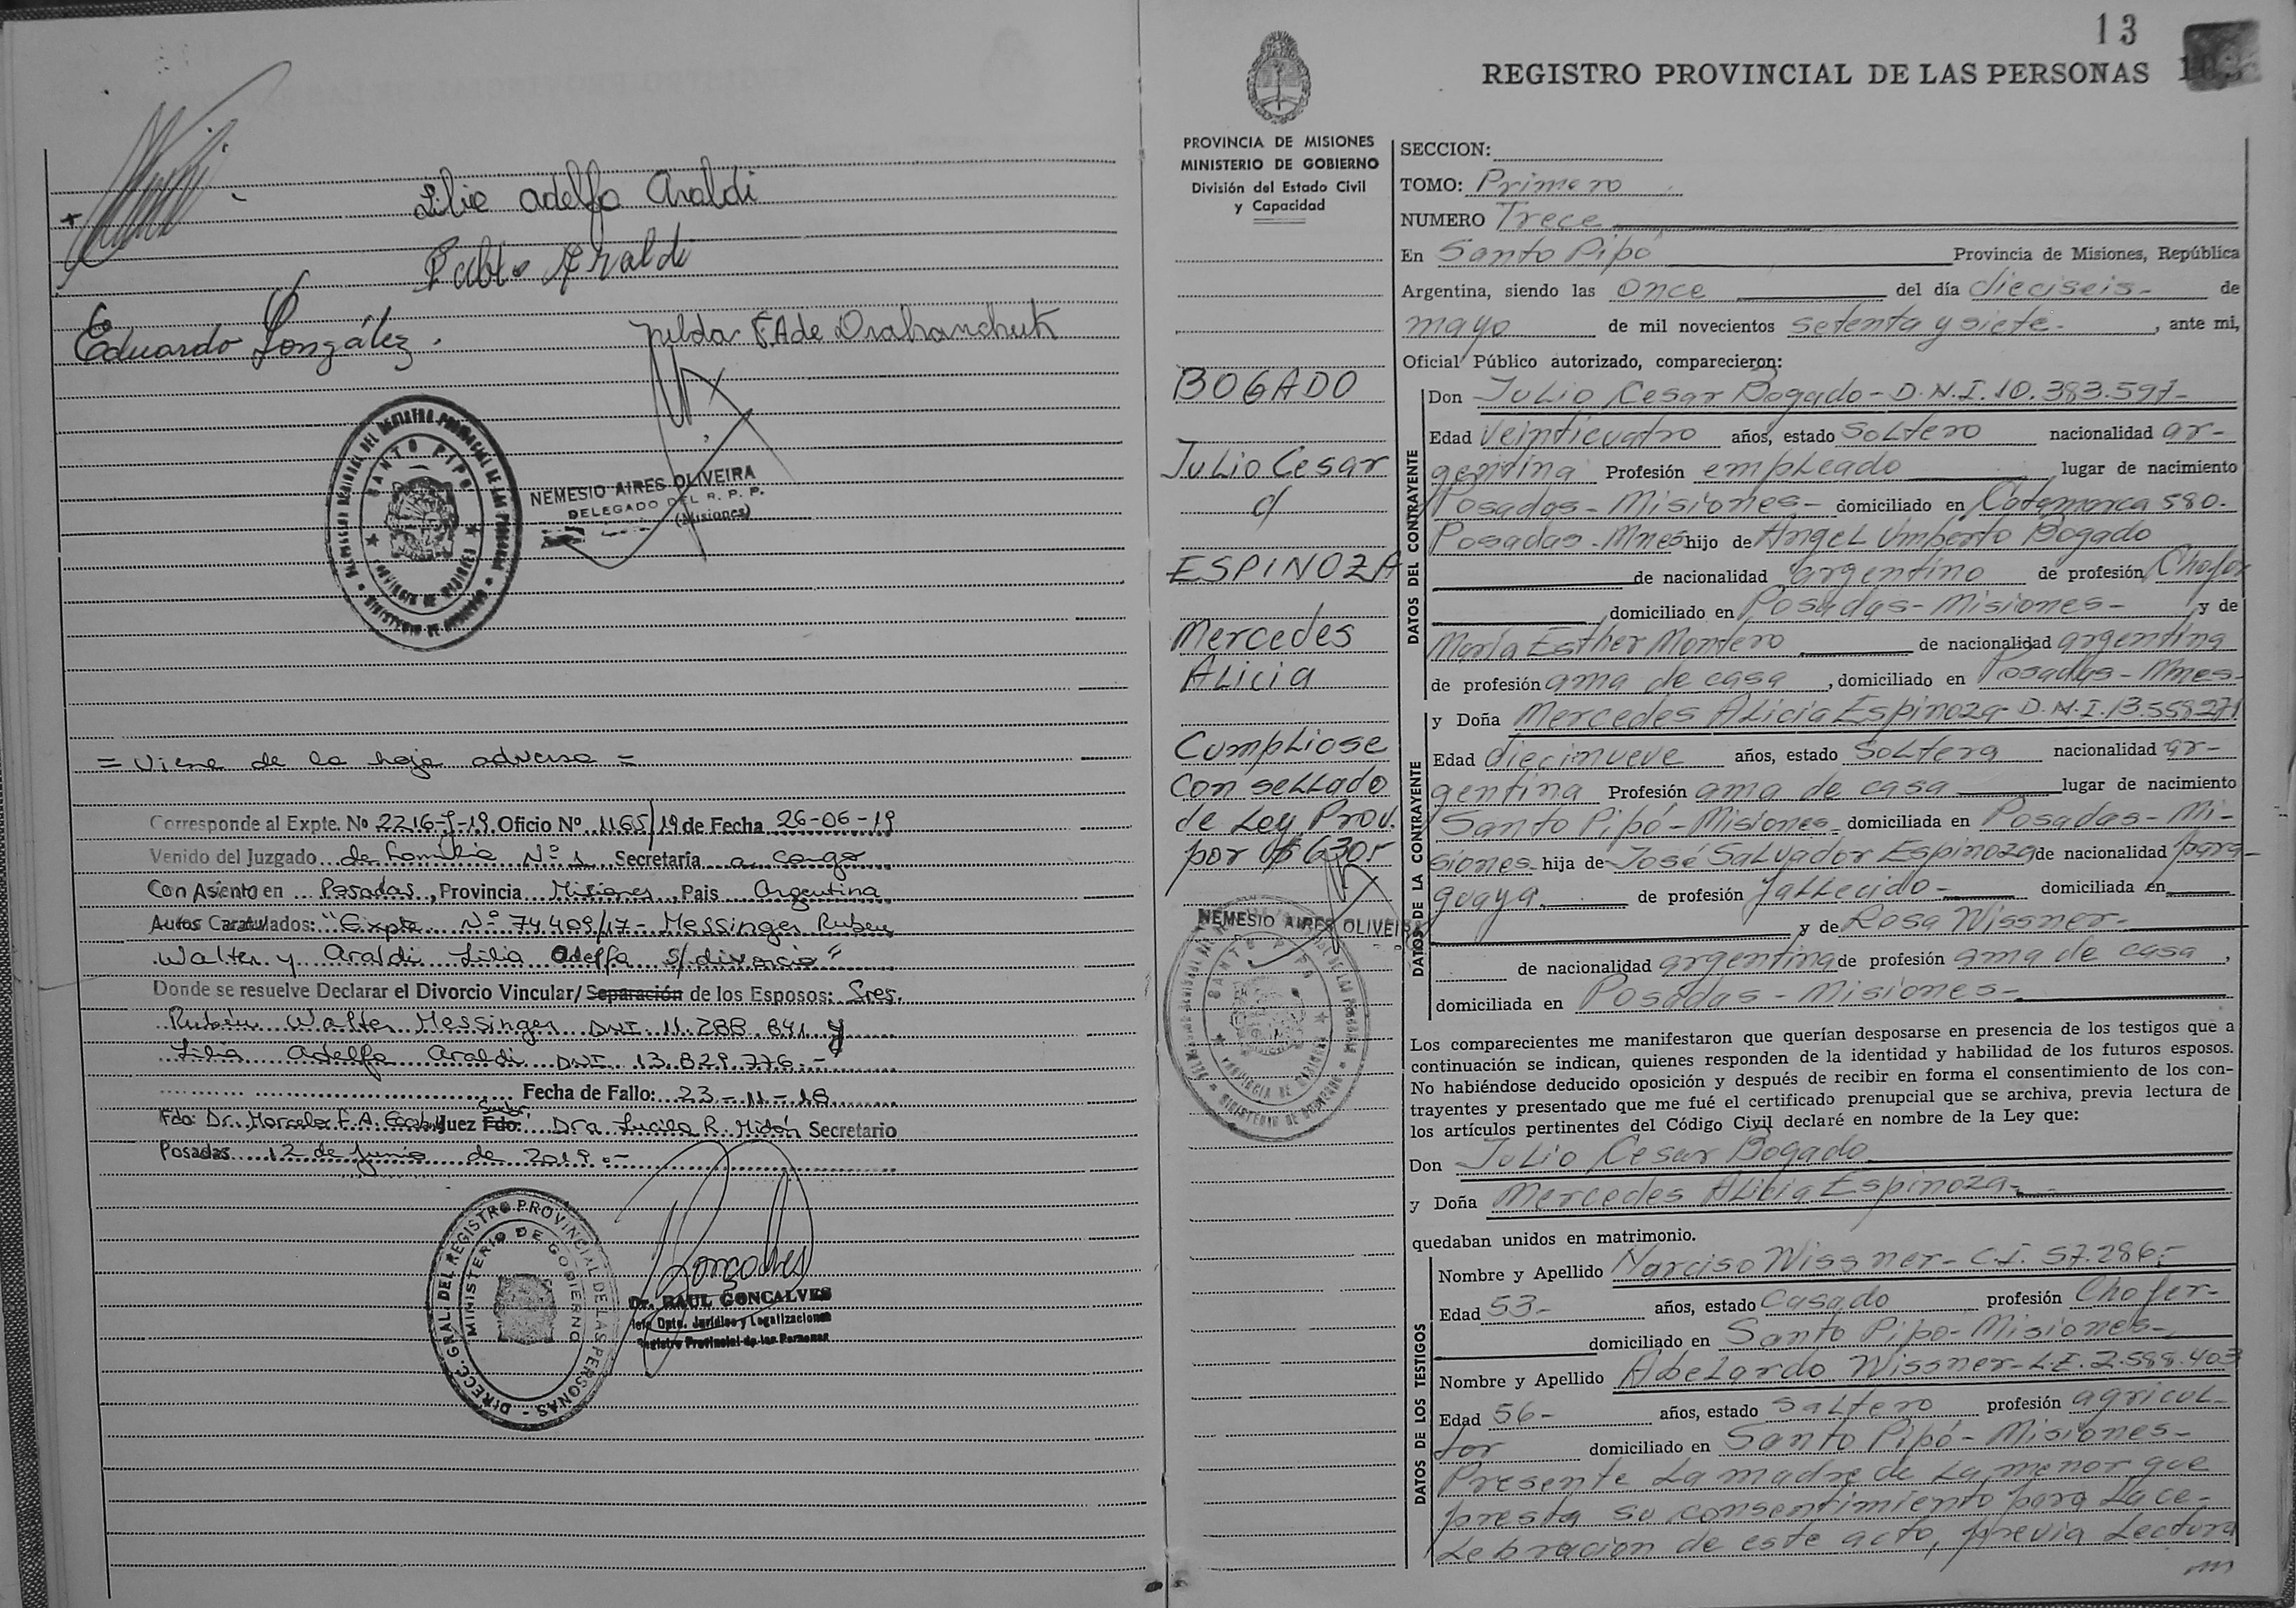 Lilia Adelfa Araldi
Pablo Araldi
Eduardo González.
F. A de Drahanchuk
DELEGACION REGIONAL DEL REGISTRO PROVINCIAL DE LAS PERSONAS
SANTO PIPO
PROVINCIA DE MISIONES
MINISTERIO DE GOBIERNO
NEMESIO AIRES OLIVEIRA
DELEGADO DEL R. P. P.
(Misiones)
= Viene de la hoja adversa =
Corresponde al Expte. No 2216-J-19 Oficio No 1165/19 de Fecha 26-06-19
Venido del Juzgado de Familia Nº 1 Secretaría a cargo
Con Asiento en Posadas, Provincia Misiones, Pais Argentina
Autos Caratulados: "Expte Nº 74409/17 - Messinger Ruben
Walter y Araldi Lilia Adelfa s/divorcio"
Donde se resuelve Declarar el Divorcio Vincular/ Separación de los Esposos: Sres.
Rubén Walter Messinger DNI 11.288.841 y
Lilia Adelfa Araldi DNI 13.829.776.-
Fecha de Fallo: 23-11-18
Fdo: Dr. Marcelo F. A. Juez Fdo: Dra Lucila R. Midón Secretario
Posadas 12 de Junio de 2019.-
DIRECC. GRAL. DEL REGISTRO PROVINCIAL DE LAS PERSONAS
MINISTERIO DE GOBIERNO
Dr. RAUL GONCALVES
Jefe Dpto. Jurídico y Legalizaciones
Registro Provincial de las Personas
13
REGISTRO PROVINCIAL DE LAS PERSONAS
PROVINCIA DE MISIONES
MINISTERIO DE GOBIERNO
División del Estado Civil
y Capacidad
BOGADO
Julio Cesar
c/
ESPINOZA
Mercedes
Alicia
Cumpliose
con sellado
de Ley Prov.
por $ 630.-
NEMESIO AIRES OLIVEIRA
SANTO PIPO
PROVINCIA DE MISIONES
MINISTERIO DE GOBIERNO
SECCION:
TOMO: Primero
NUMERO Trece
En Santo Pipó Provincia de Misiones, República
Argentina, siendo las once del día dieciseis- de
mayo de mil novecientos setenta y siete-, ante mi,
Oficial Público autorizado, comparecieron:
DATOS DEL CONTRAYENTE
Don Julio Cesar Bogado - D.N.I. 10.383.597-
Edad Veinticuatro años, estado soltero nacionalidad ar-
gentina Profesión empleado lugar de nacimiento
Posadas - Misiones - domiciliado en Catamarca 580.
Posadas - Mnes hijo de Angel Umberto Bogado
de nacionalidad argentino de profesión Chofer
domiciliado en Posadas - Misiones - y de
María Esther Montero de nacionalidad argentina
de profesión ama de casa, domiciliado en Posadas - Mnes-
DATOS DE LA CONTRAYENTE
y Doña Mercedes Alicia Espinoza - D.N.I. 13.558.271
Edad diecinueve años, estado soltera nacionalidad ar-
gentina Profesión ama de casa lugar de nacimiento
Santo Pipó - Misiones - domiciliada en Posadas - Mi-
siones - hija de José Salvador Espinoza de nacionalidad para-
guaya. de profesión fallecido - domiciliada en
y de Rosa Wissner -
de nacionalidad argentina de profesión ama de casa,
domiciliada en Posadas - Misiones -
Los comparecientes me manifestaron que querían desposarse en presencia de los testigos que a
continuación se indican, quienes responden de la identidad y habilidad de los futuros esposos.
No habiéndose deducido oposición y después de recibir en forma el consentimiento de los con-
trayentes y presentado que me fué el certificado prenupcial que se archiva, previa lectura de
los artículos pertinentes del Código Civil declaré en nombre de la Ley que:
Don Julio Cesar Bogado
y Doña Mercedes Alicia Espinoza -
quedaban unidos en matrimonio.
DATOS DE LOS TESTIGOS
Nombre y Apellido Narciso Wissner - C.I. 57.286,-
Edad 53- años, estado casado profesión Chofer-
domiciliado en Santo Pipo - Misiones -
Nombre y Apellido Abelardo Wissner - L.E. 2.588.403
Edad 56- años, estado saltero profesión agricul-
tor domiciliado en Santo Pipó - Misiones -
Presente la madre de la menor que
presta su consentimiento para la ce-
lebracion de este acto, previa lectura